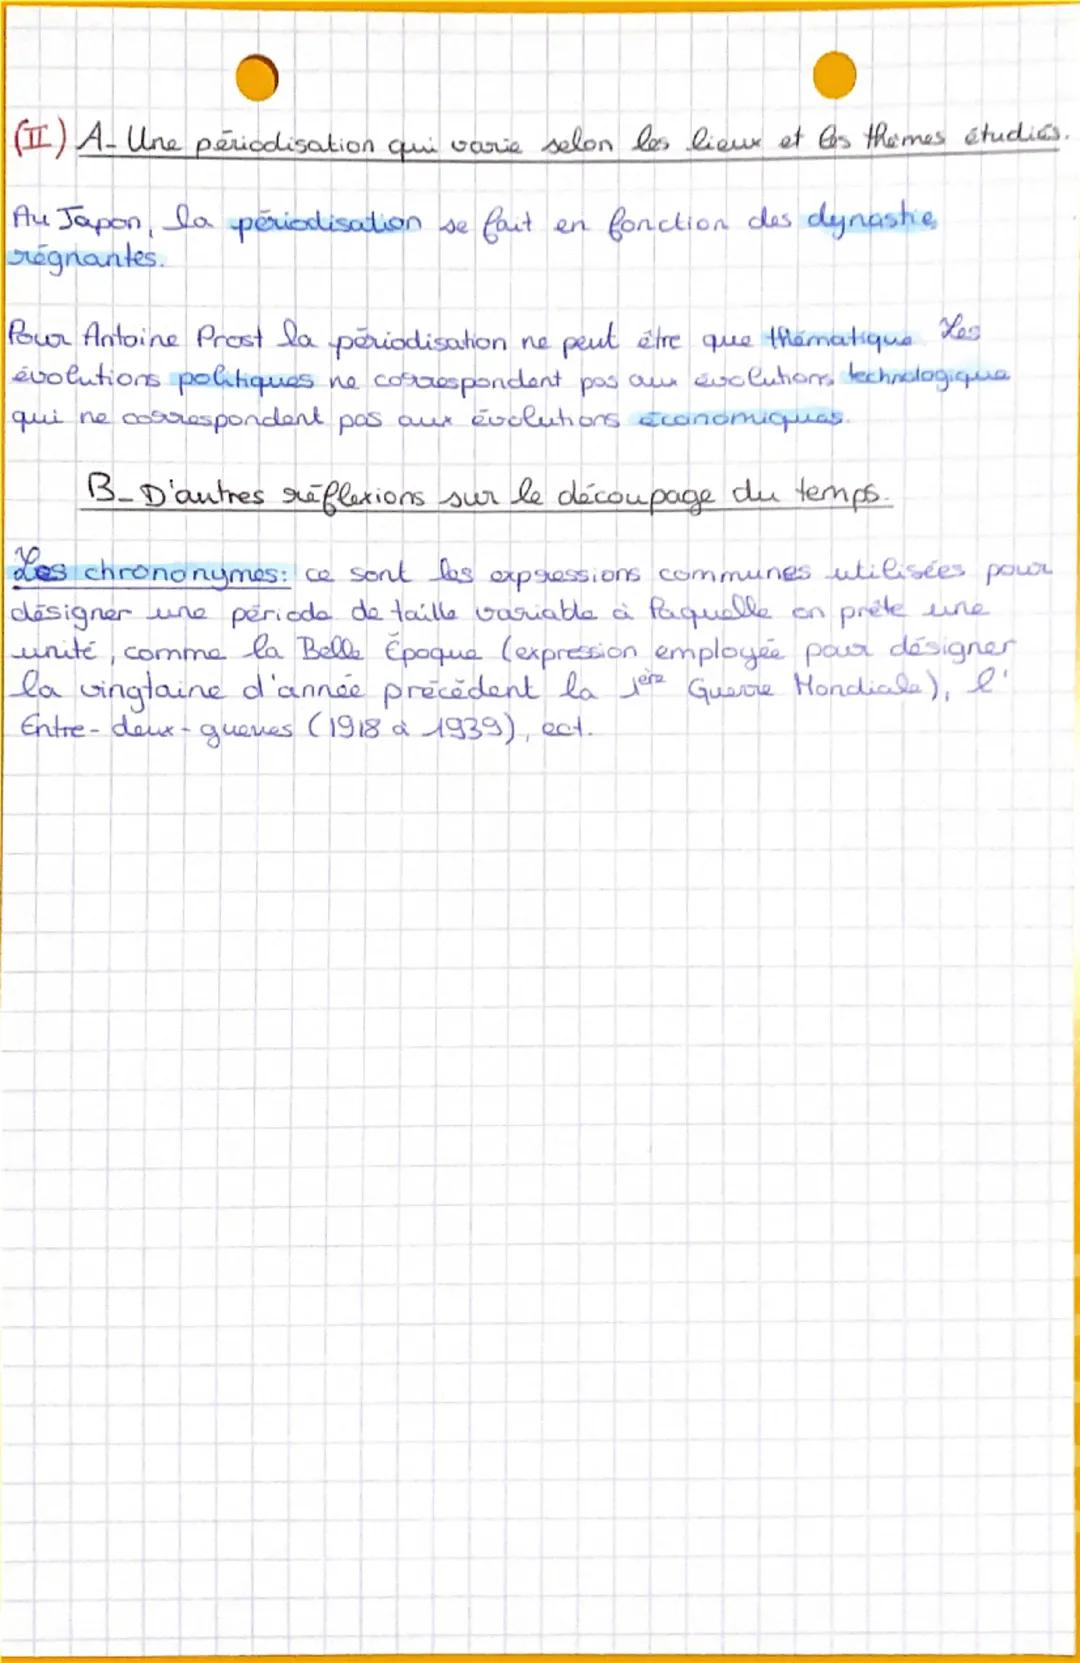 (II) A- Une périodisation qui varie selon les lieux et les thèmes étudiés.
Au Japon, la périodisation se fait en fonction des dynastie
régnantes.
Pour Antoine Prost la périodisation ne peut être que thématique. Les
évolutions politiques ne correspondent pas aux évolutions technologique
qui ne correspondent pas aux évolutions économiques.
B- D'autres réflexions sur le découpage du temps.
Les chrononymes: ce sont les expressions communes utilisées pour
désigner une période de taille variable à laquelle on prête une
unité, comme la Belle Époque (expression employée pour désigner
la vingtaine d'année précédent la 1ère Guerre Mondiale), l'
Entre-deux-guerres (1918 à 1939), ect.